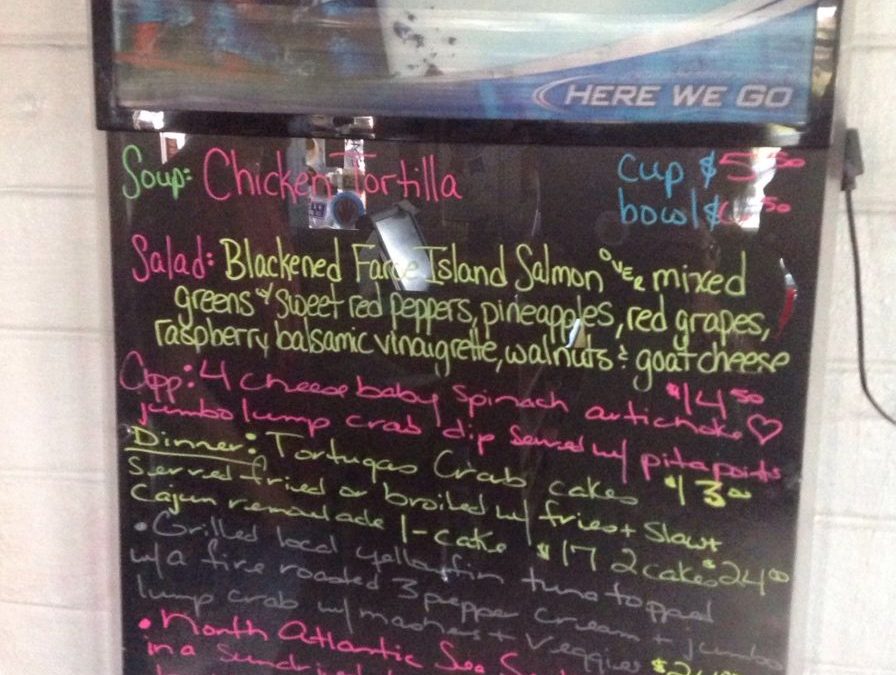 HERE WE GO
Soup: Chicken Tortilla cup $5.50
bowl $6.50
Salad: Blackened Faroe Island Salmon OVER mixed
greens w/ sweet red peppers, pineapples, red grapes,
raspberry balsamic vinaigrette, walnuts & goat cheese
$14.50
App: 4 cheese baby spinach artichoke ♡
jumbo lump crab dip served w/ pita points
$13.00
Dinner: Tortugas Crab cakes
served fried or broiled w/ fries + Slaw +
Cajun remoulade 1-cake $17 2 cakes $24.00
• Grilled local yellowfin tuna topped
w/ a fire roasted 3 pepper cream + jumbo
lump crab w/ mashers + veggies
• North Atlantic Sea
in a sundried